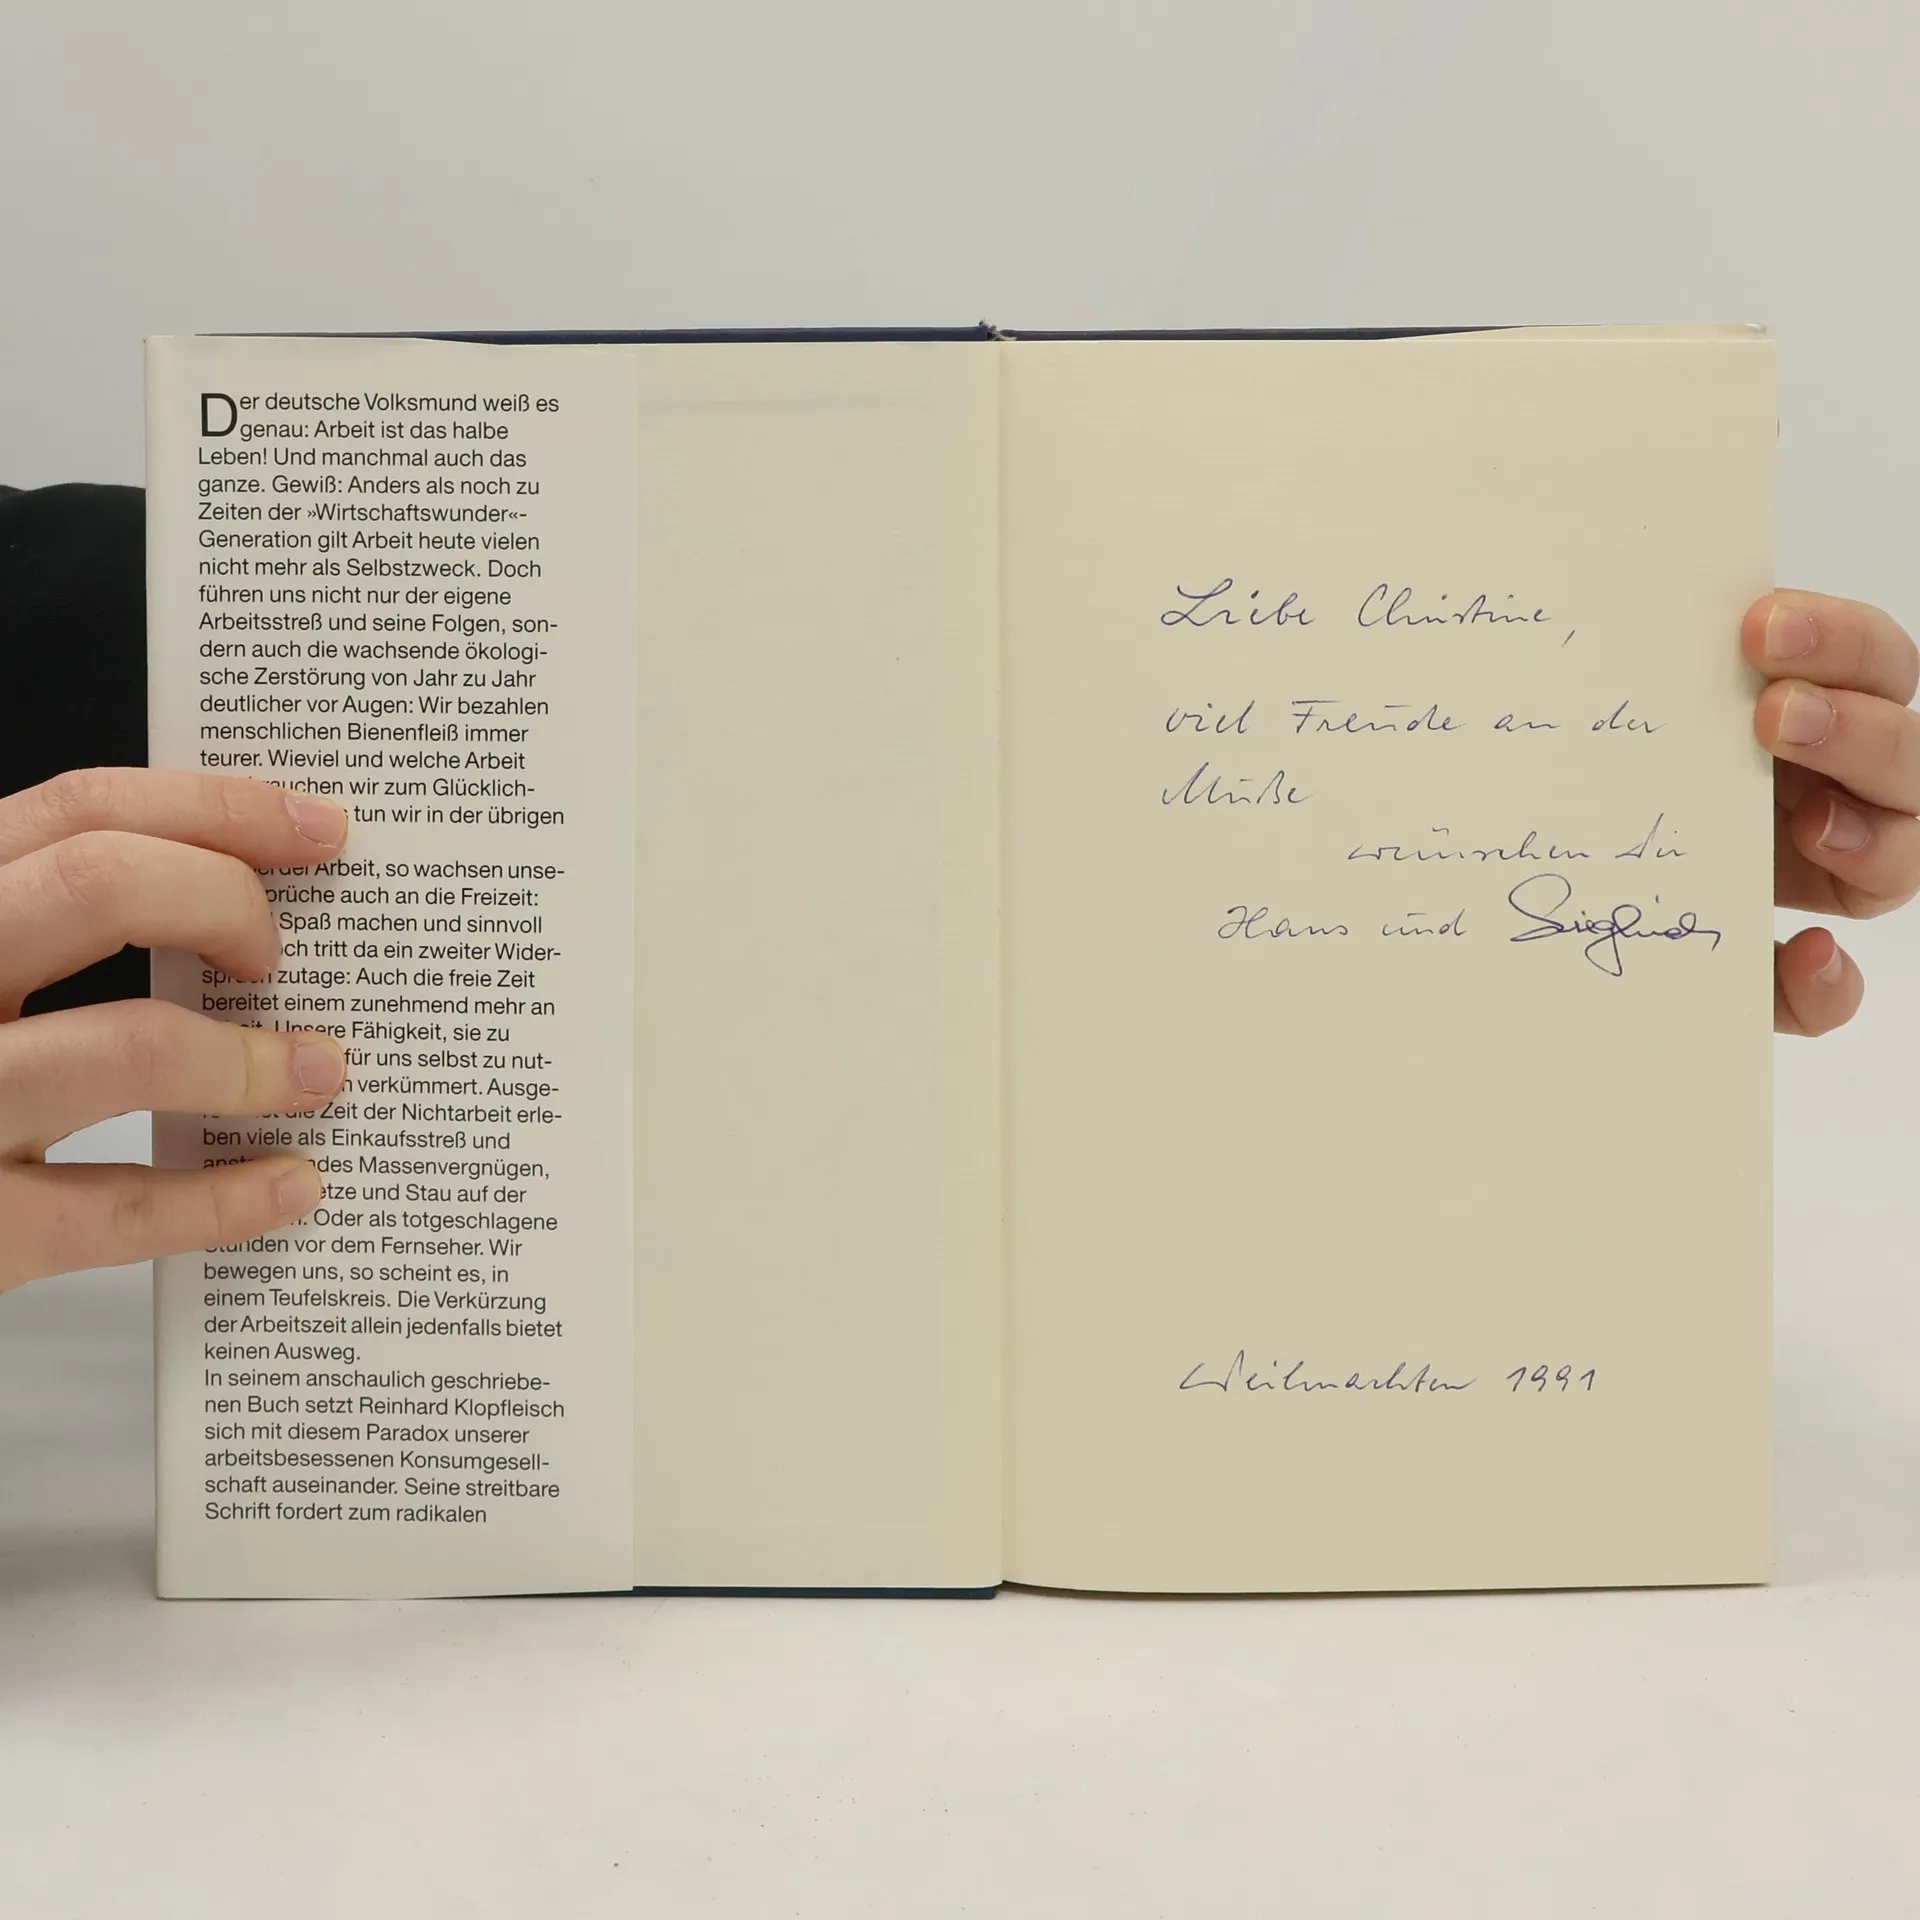 Der deutsche Volksmund weiß es
genau: Arbeit ist das halbe
Leben! Und manchmal auch das
ganze. Gewiß: Anders als noch zu
Zeiten der »Wirtschaftswunder«-
Generation gilt Arbeit heute vielen
nicht mehr als Selbstzweck. Doch
führen uns nicht nur der eigene
Arbeitsstreß und seine Folgen, son-
dern auch die wachsende ökologi-
sche Zerstörung von Jahr zu Jahr
deutlicher vor Augen: Wir bezahlen
menschlichen Bienenfleiß immer
teurer. Wieviel und welche Arbeit
wir zum Glücklich-
tun wir in der übrigen
Arbeit, so wachsen unse-
auch an die Freizeit:
Spaß machen und sinnvoll
tritt da ein zweiter Wider-
zutage: Auch die freie Zeit
bereitet einem zunehmend mehr an
Unsere Fähigkeit, sie zu
für uns selbst zu nut-
verkümmert. Ausge-
die Zeit der Nichtarbeit erle-
ben viele als Einkaufsstreß und
Massenvergnügen,
und Stau auf der
Oder als totgeschlagene
Stunden vor dem Fernseher. Wir
bewegen uns, so scheint es, in
einem Teufelskreis. Die Verkürzung
der Arbeitszeit allein jedenfalls bietet
keinen Ausweg.
In seinem anschaulich geschriebe-
nen Buch setzt Reinhard Klopfleisch
sich mit diesem Paradox unserer
arbeitsbesessenen Konsumgesell-
schaft auseinander. Seine streitbare
Schrift fordert zum radikalen
Liebe Christine,
viel Freude an der
Muße
wünschen Dir
Hans und Sieglinde
Weihnachten 1991